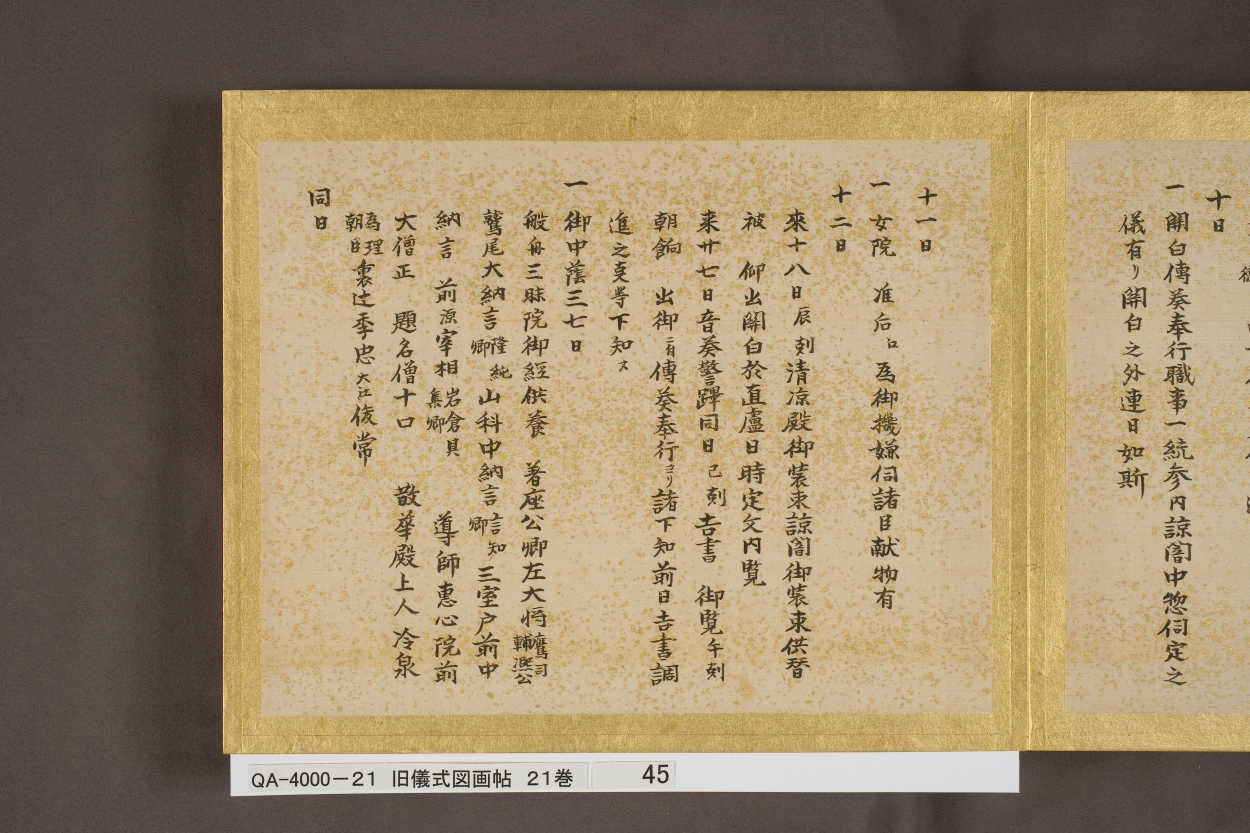 十日
一 関白傳葵奉行職事一統参内諒闇中惣伺定之
儀有リ関白之外連日如斯
十一日
一 女院 准后ゟ為御機嫌伺諸臣献物有
十二日
來十八日辰刻清凉殿御装束諒闇御装束供替
被 仰出関白於直廬日時定文内覧
来廿七日音葵警蹕同日己刻吉書 御覧午刻
朝餉 出御二有傳葵奉行ヨリ諸下知前日吉書調
進之㕝等下知ス
一 御中蔭三七日
般舟三昧院御経供養 著座公卿左大将鷹司輔凞公
鷲尾大納言隆純卿 山科中納言言知卿 三室戸前中
納言 前源宰相岩倉具集卿 導師惠心院前
大僧正 題名僧十口 散華殿上人 冷泉
為理朝臣 裏辻季忠 大江俊常
同日
QA-4000-21 旧儀式図画帖 21巻 45